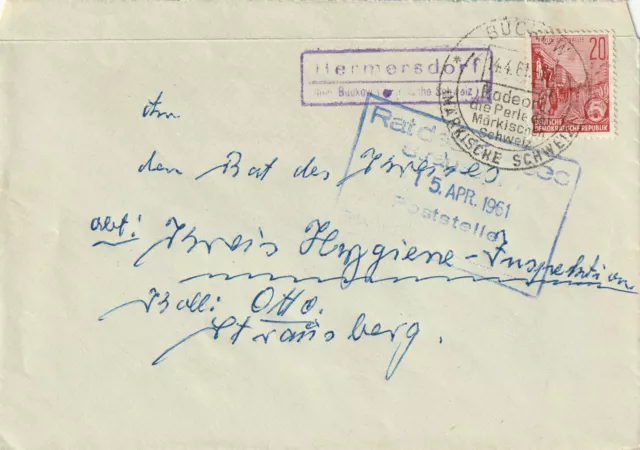 BUCKOW
4.4.61
Badeort
die Perle der
Märkischen
Schweiz
MÄRKISCHE SCHWEIZ
20
DEUTSCHE
DEMOKRATISCHE REPUBLIK
Hermersdorf
über Buckow (Märkische Schweiz)
Rat d
15. APR. 1961
Poststelle
An
den Rat des Kreises
abt: Kreis Hygiene-Inspektion
Koll: Otto.
Strausberg.